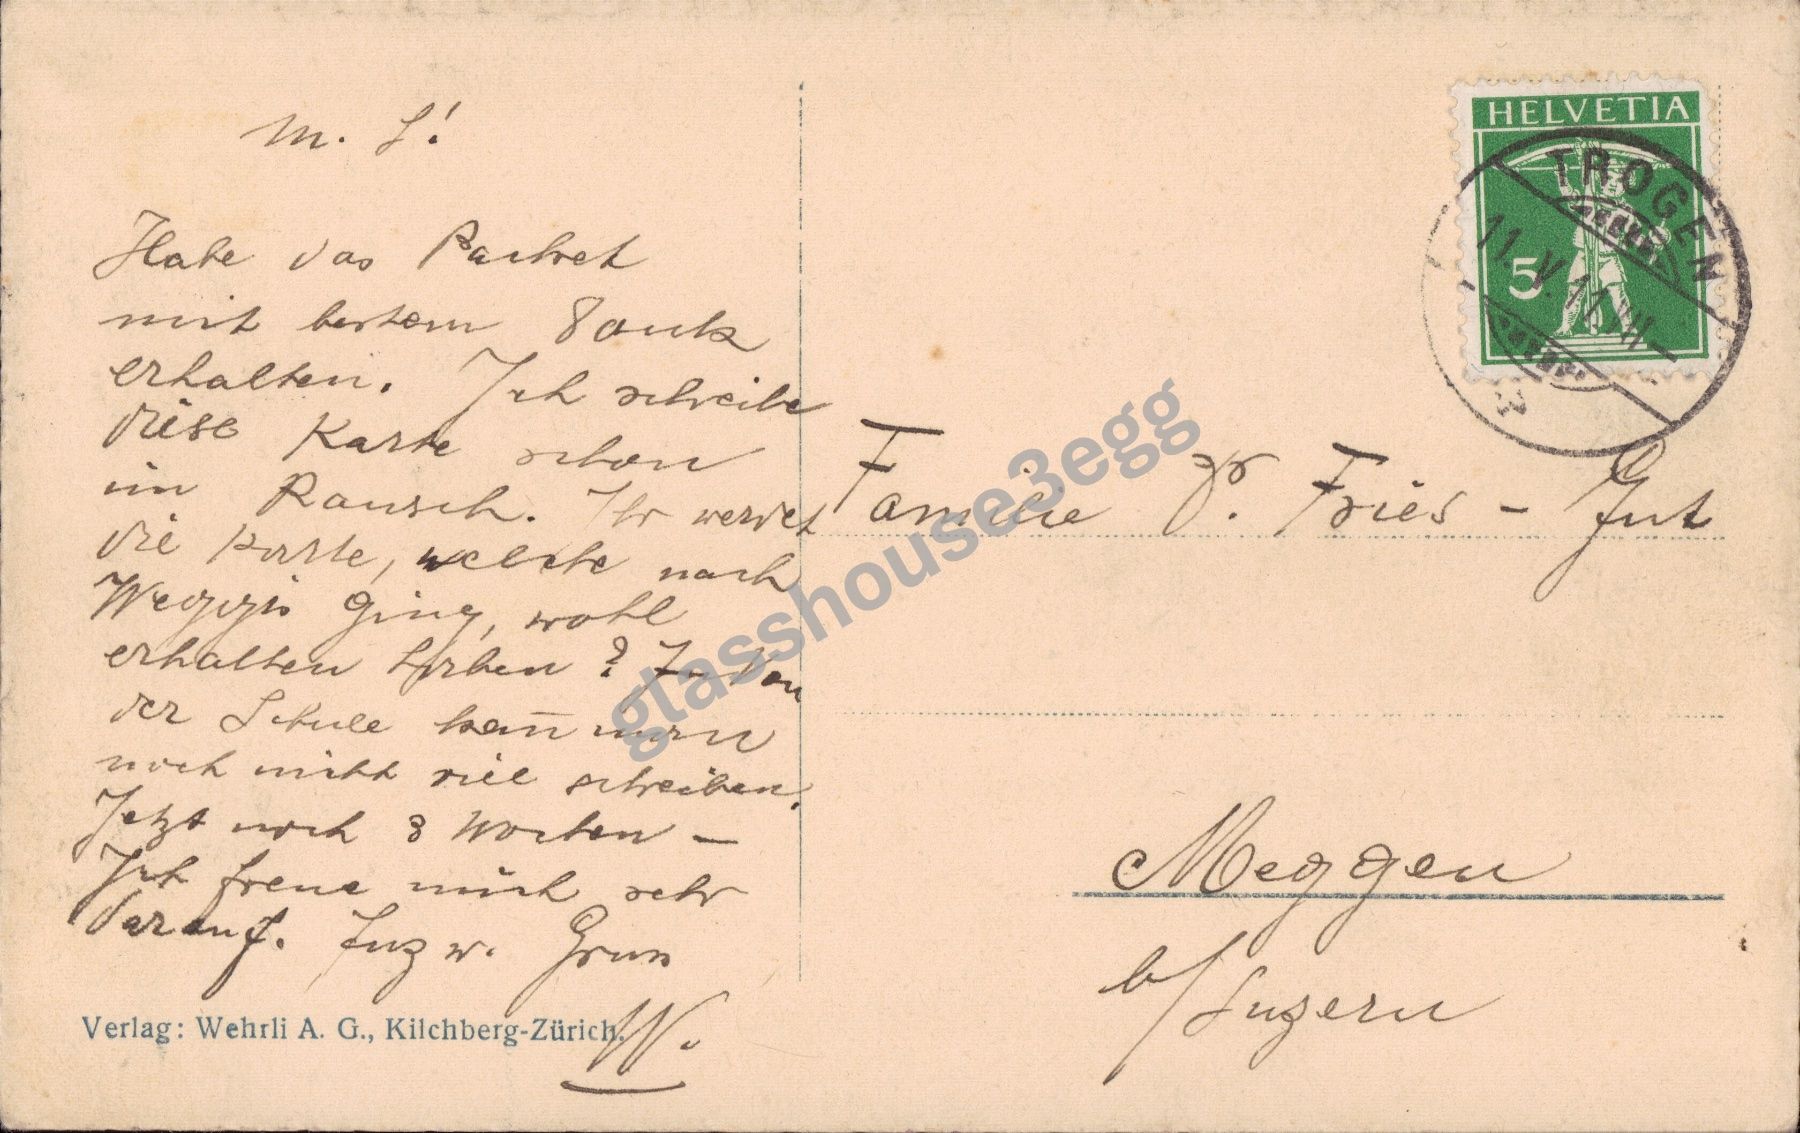 M. L!
Habe das Packet
mit bestem Dank
erhalten. Ich schreibe
diese Karte schon
im Rausch. Ihr werdet
die Karte, welche nach
Weggis ging, wohl
erhalten haben? In von
der Schule kann man
noch nicht viel schreiben.
Jetzt noch 8 Wochen –
Ich freue mich sehr
darauf. Inzw. Gruss
W.
Verlag: Wehrli A. G., Kilchberg-Zürich.
HELVETIA
5
TROGEN
11. V. 11. VII –
Familie Fries - Gut
Meggen
b/Luzern
glasshouse3egg